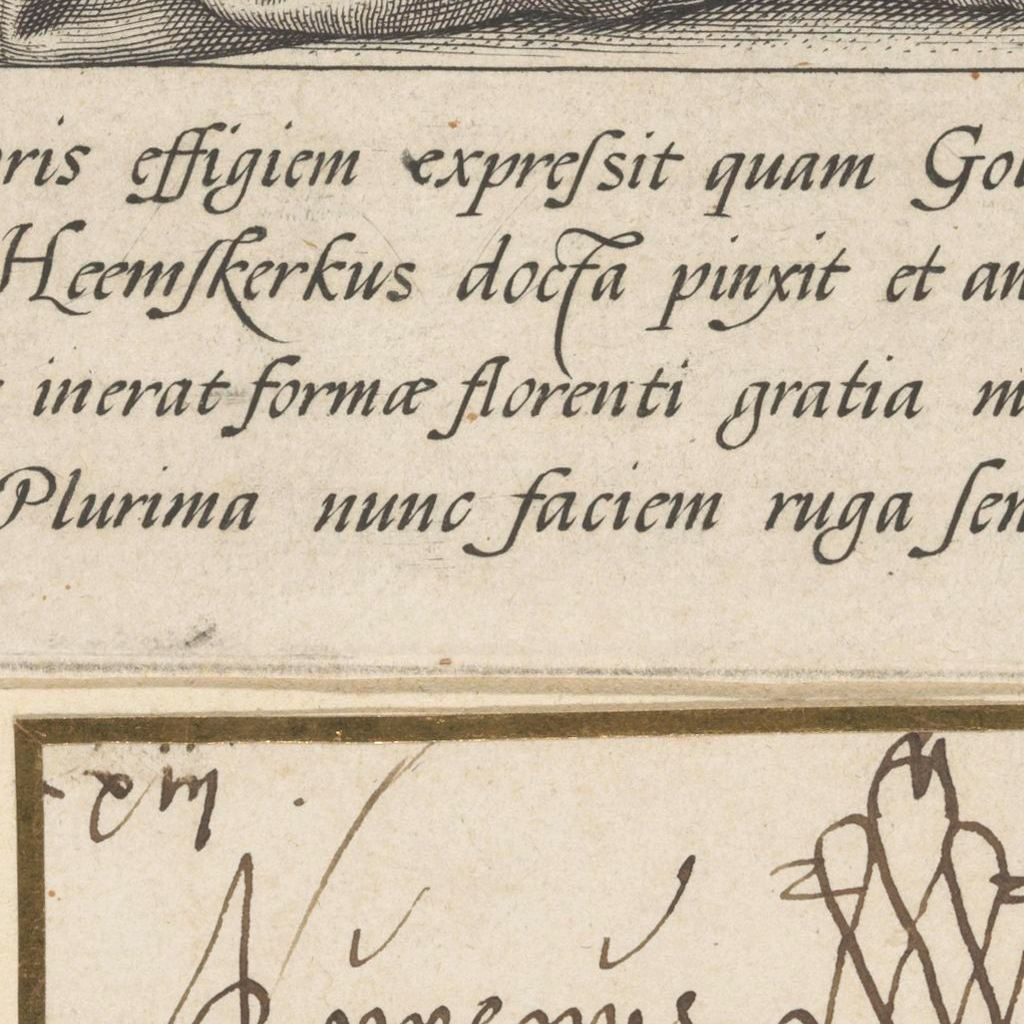 ris effigiem expreſsit quam Go
Heemſkerkus docta pinxit et an
inerat formæ florenti gratia
Plurima nunc faciem ruga ſen
xiij